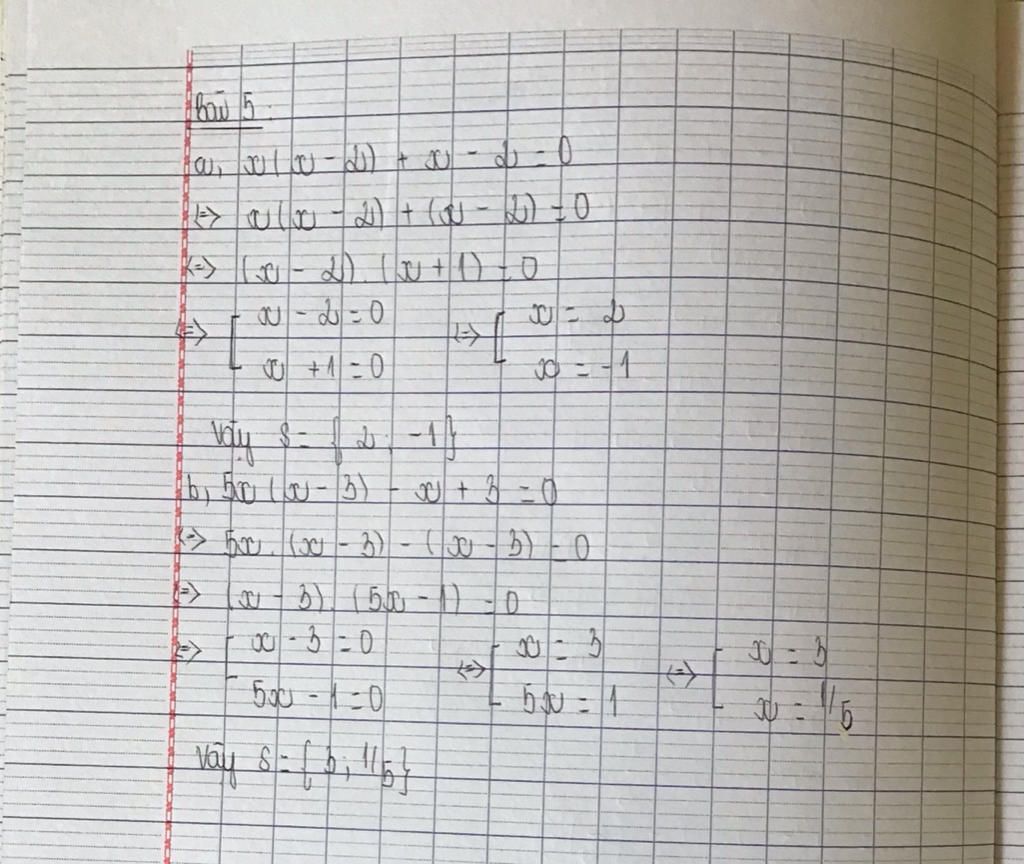 Bài 5:
a, x(x - 2) + x - 2 = 0
<=> x(x - 2) + (x - 2) = 0
<=> (x - 2).(x + 1) = 0
<=> [ x - 2 = 0 <=> [ x = 2
x + 1 = 0 x = -1
Vậy S = { 2; -1}
b, 5x(x - 3) - x + 3 = 0
<=> 5x.(x - 3) - (x - 3) = 0
<=> (x - 3).(5x - 1) = 0
<=> [ x - 3 = 0 <=> [ x = 3 <=> [ x = 3
5x - 1 = 0 5x = 1 x = 1/5
Vậy S = { 3; 1/5}